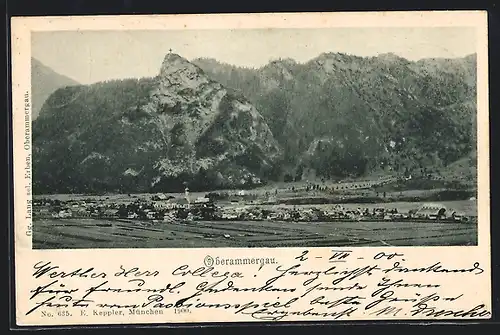 Gg. Lang sel. Erben, Oberammergau.
Oberammergau.
2 - VII - 00.
Werther Herr College! Herzlichst dankend
für freundl. Gedenken sende Ihnen
heute vom Passionsspiel beste Grüße
Ergebenst M.
No. 635. E. Keppler, München 1900.